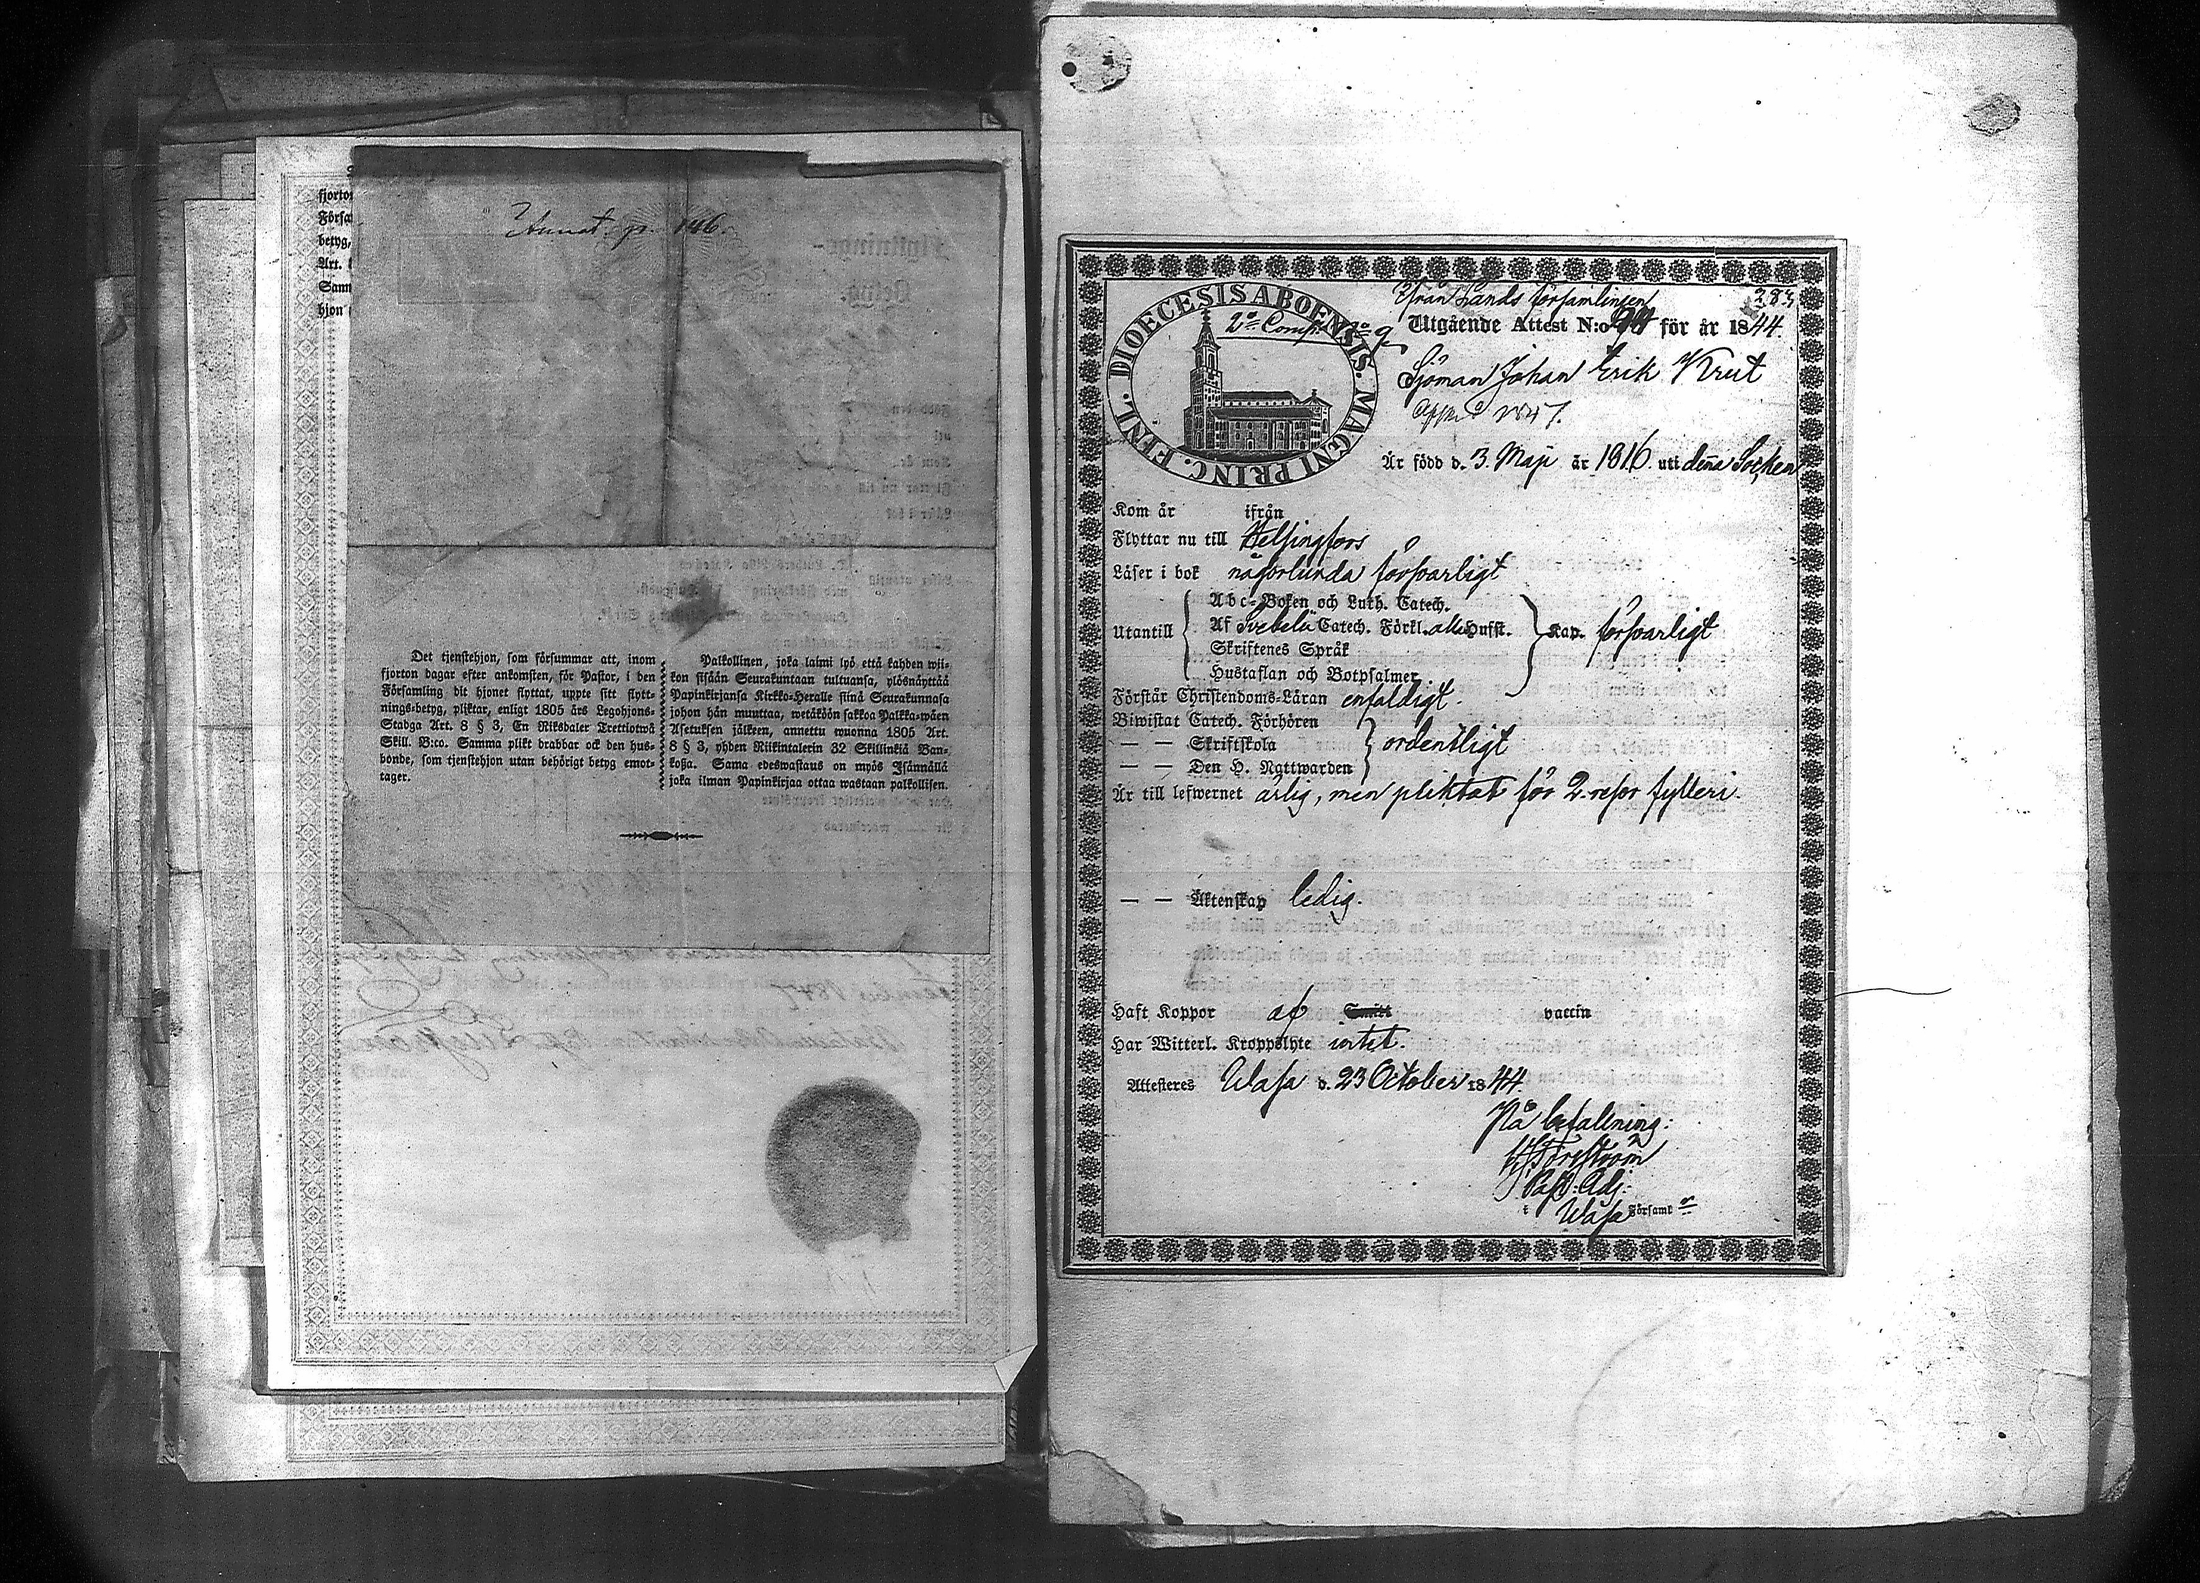 Annot. p. 146.
fjorton
Förfa
betyg,
Art.
Sam
hjon
Det tjenstehjon, som försummar att, inom
fjorton dagar efter ankomsten, för Pastor, i den
Församling dit hjonet flyttat, uppte sitt flytt-
nings-betyg, pliktar, enligt 1805 års Legohjons-
Stadga Art. 8 § 3, En Riksdaler Trettiotwå
Skill. B:co. Samma plikt drabbar ock den hus-
bonde, som tjenstehjon utan behörigt betyg emot-
tager.
Palkollinen, joka laimi lyö että kahden wii-
kon sisään Seurakuntaan tultuansa, ylösnäyttää
Papinkirjansa Kirkko-Herralle siinä Seurakunnasa
johon hän muuttaa, wetäköön sakkoa Palkka-wäen
Asetuksen jälkeen, annettu wuonna 1805 Art.
8 § 3, yhden Riikintalerin 32 Skillinkiä Ban-
koßa. Sama edeswastaus on myös Isännällä
joka ilman Papinkirjaa ottaa wastaan palkollisen.
283
Ifrån Lands församlingen
DIOECESIS ABOENSIS. MAGNI PRINC. FINL.
2º Comp. Nº 9
Utgående Attest N:o 94 för år 1844.
Sjöman Johan Erik Krut
1847.
Är född d. 3. Maji år 1816. uti denna Socken
Kom år ifrån
Flyttar nu till Helsingfors
Läser i bok någorlunda försvarligt
Utantill
Abc-Boken och Luth. Catech.
Af Svebelii Catech. Förkl. alla Hufst.
Skriftenes Språk
Hustaflan och Botpsalmer
Kap. försvarligt
Förstår Christendoms-Läran enfaldigt.
Biwistat Catech. Förhören
— — Skriftskola
— — Den H. Nattwarden
ordentligt
Är till lefwernet ärlig, men pliktat för 2. resor fylleri.
— — Äktenskap ledig.
Haft Koppor af Smitt vaccin
Har Witterl. Kroppslyte intet.
Attesteres Wasa d. 23 October 1844
På befallning:
Past. Adj.
i Wasa Församl